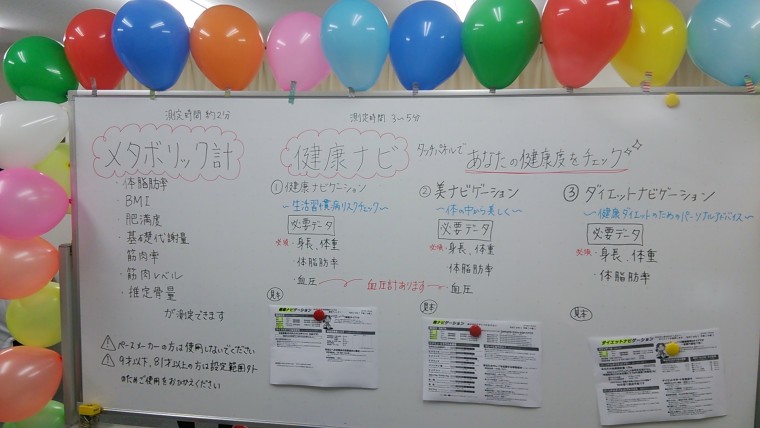 測定時間 約2分
メタボリック計
・体脂肪率
・BMI
・肥満度
・基礎代謝量
・筋肉率
・筋肉レベル
・推定骨量
が測定できます
ペースメーカーの方は使用しないでください
9才以下、81才以上の方は設定範囲外
のためご使用をおひかえください
測定時間 3〜5分
健康ナビ
タッチパネルで あなたの健康度をチェック
①健康ナビゲーション
〜生活習慣病リスクチェック〜
必要データ
必須・身長、体重
・体脂肪率
・血圧
血圧計あります
見本
健康ナビゲーション
②美ナビゲーション
〜体の中から美しく〜
必要データ
必須・身長、体重
・体脂肪率
・血圧
見本
美ナビゲーション
③ダイエットナビゲーション
〜健康ダイエットのためのパーソナルアドバイス〜
必要データ
必須・身長、体重
・体脂肪率
見本
ダイエットナビゲーション